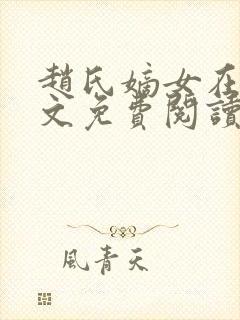 趙氏嫡女在
文免費閱讀
風青天